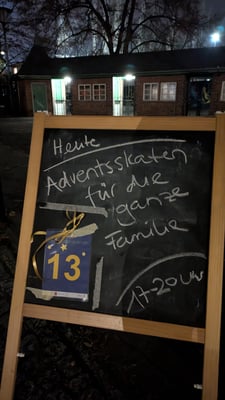 Heute
Adventsskaten
für die
ganze
Familie
13
17-20 Uhr